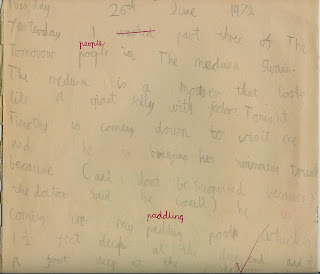 Tuesday 20th June 1972
Yesterday watched part three of The
people
Tomorrow people in The medusa Strain.
The medusa is a monster that looks
like a giant jelly with Tonight
Timothy is coming down to visit me
and he is bringing his swimming trunks
because (and dont be surprised because
the doctor said he could) he is
paddling
coming in my padding pool which is
1½ feet deep at the end and
A foot deep at the